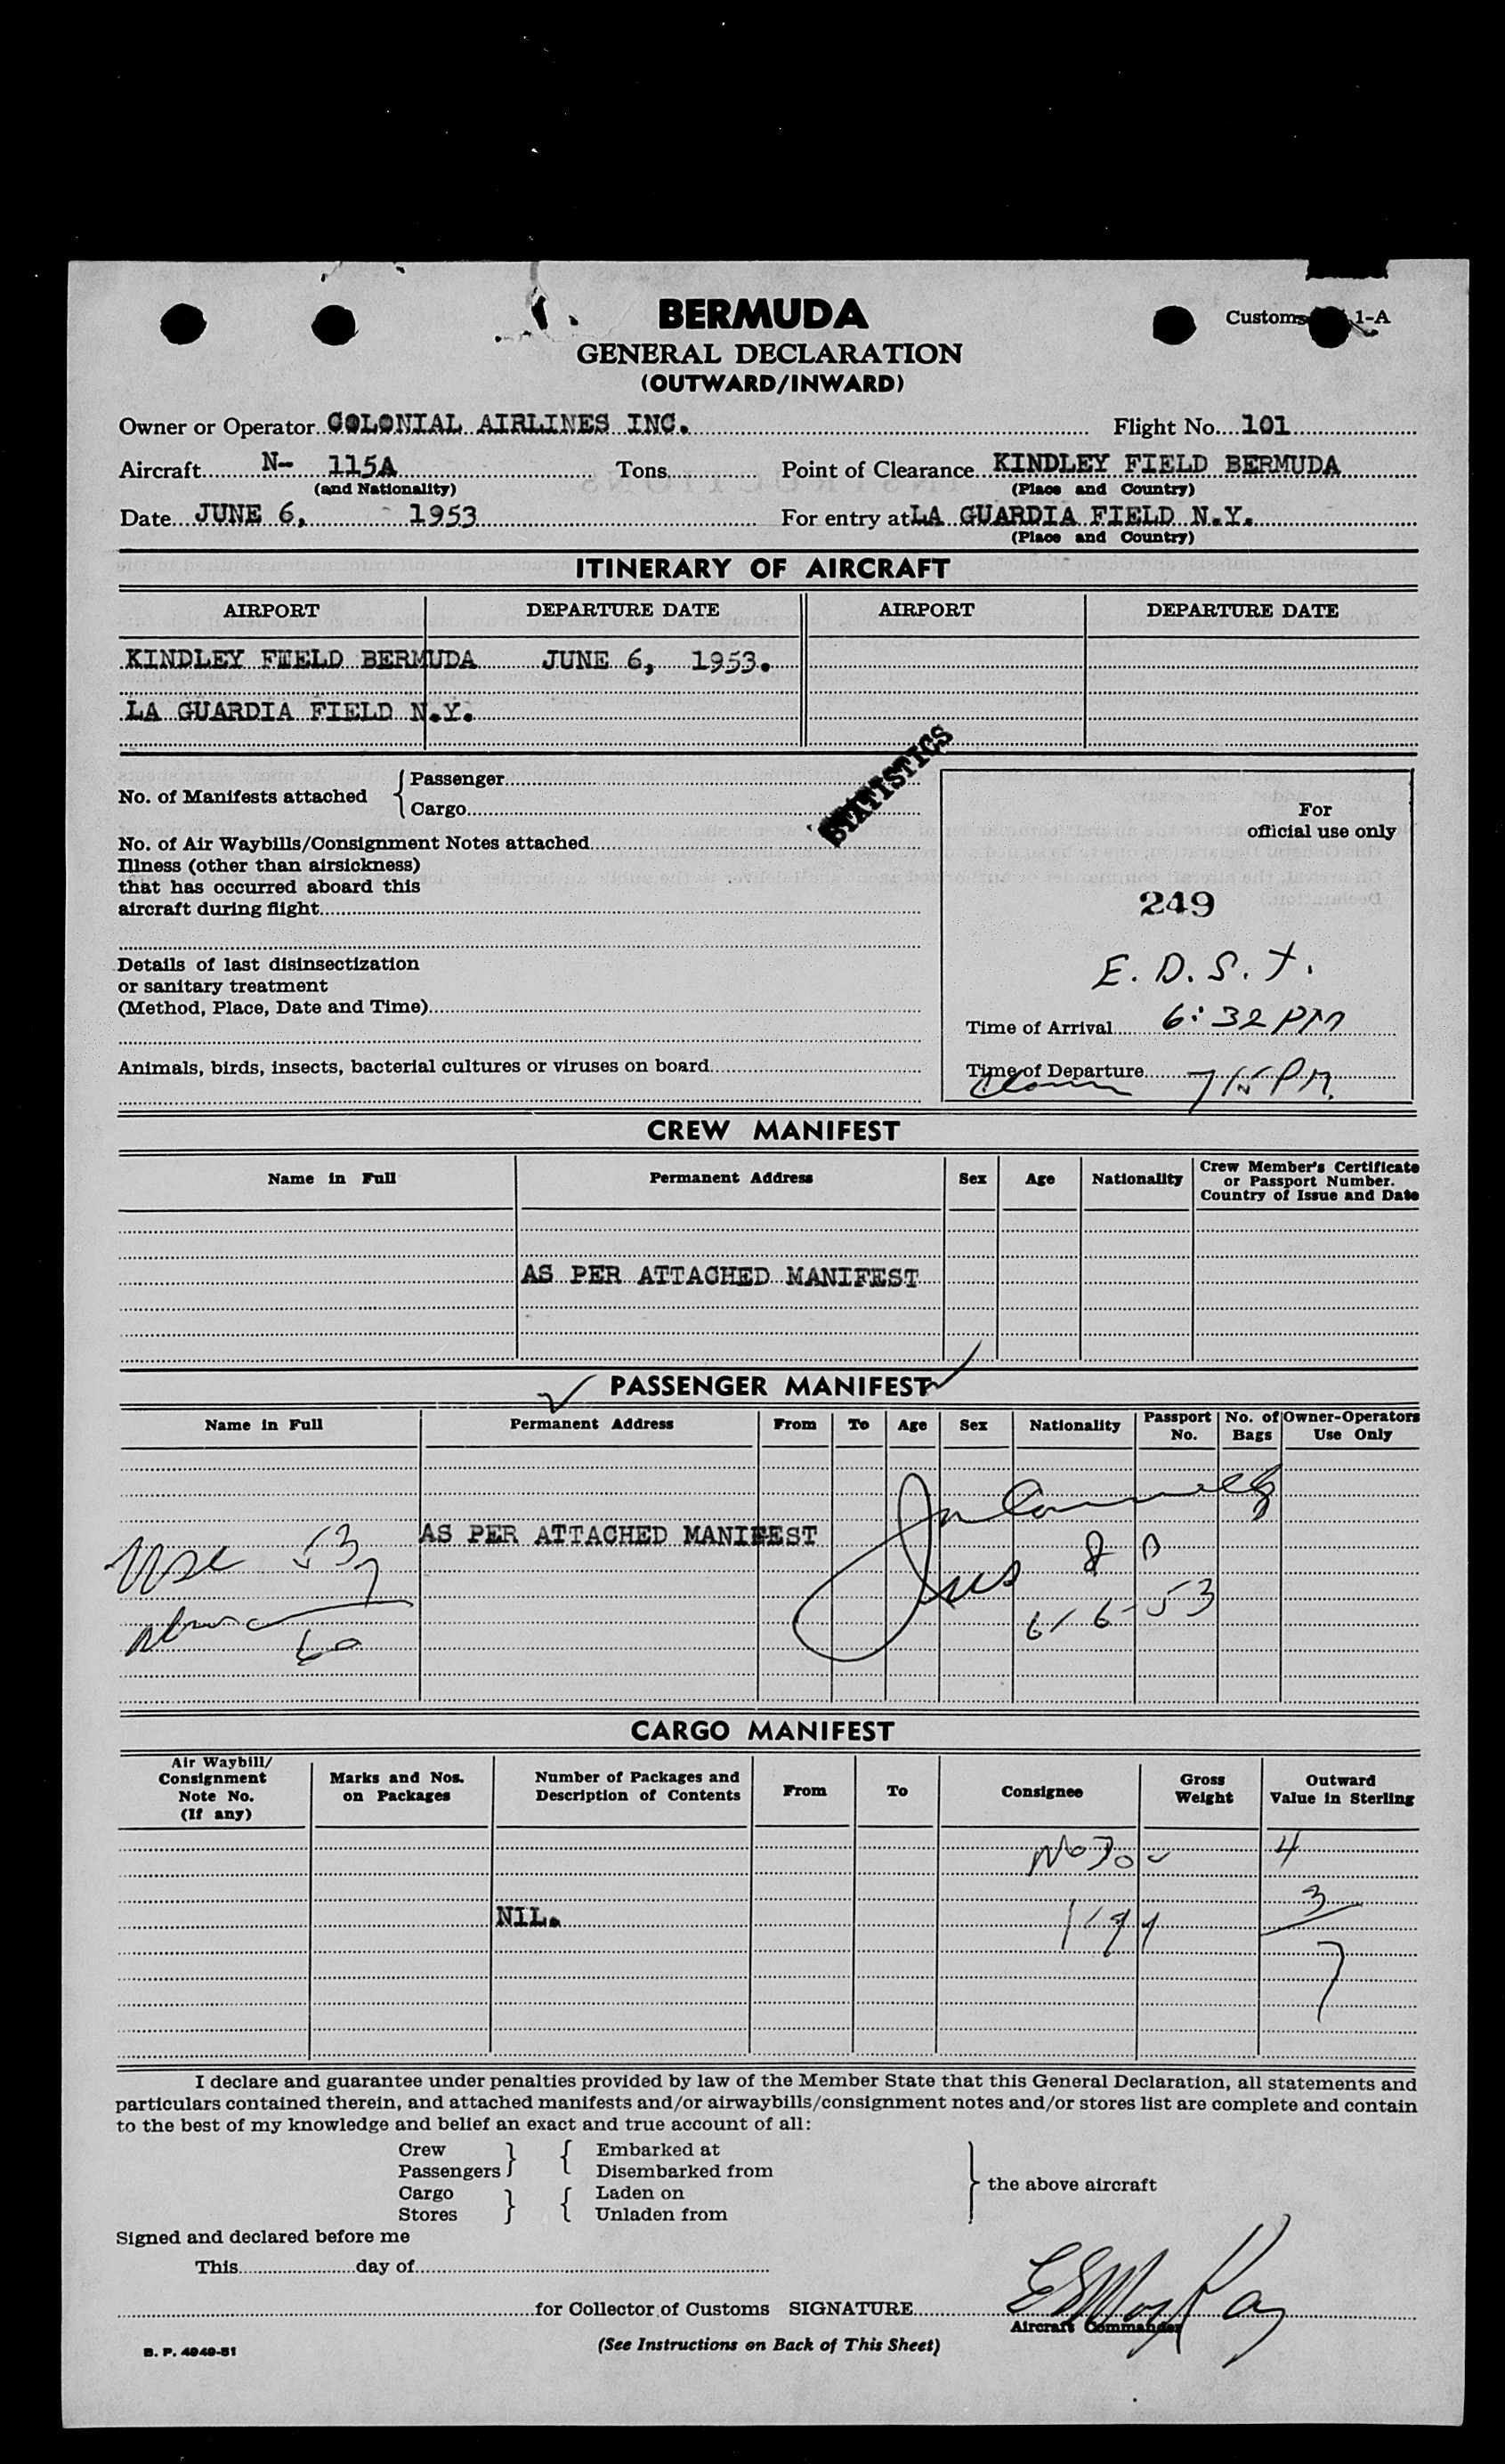 BERMUDA
Customs 1-A
GENERAL DECLARATION
(OUTWARD/INWARD)
Owner or Operator COLONIAL AIRLINES INC. Flight No. 101
Aircraft N- 115A Tons Point of Clearance KINDLEY FIELD BERMUDA
(and Nationality) (Place and Country)
Date JUNE 6, 1953 For entry at LA GUARDIA FIELD N.Y.
(Place and Country)
ITINERARY OF AIRCRAFT
AIRPORT DEPARTURE DATE AIRPORT DEPARTURE DATE
KINDLEY FIELD BERMUDA JUNE 6, 1953.
LA GUARDIA FIELD N.Y.
STATISTICS
No. of Manifests attached { Passenger
Cargo
No. of Air Waybills/Consignment Notes attached
Illness (other than airsickness)
that has occurred aboard this
aircraft during flight
Details of last disinsectization
or sanitary treatment
(Method, Place, Date and Time)
Animals, birds, insects, bacterial cultures or viruses on board
For
official use only
249
E.D.S.T.
Time of Arrival 6:32 PM
Time of Departure 7 15 P.M.
CREW MANIFEST
Name in Full Permanent Address Sex Age Nationality Crew Member's Certificate
or Passport Number.
Country of Issue and Date
AS PER ATTACHED MANIFEST
PASSENGER MANIFEST
Name in Full Permanent Address From To Age Sex Nationality Passport No. No. of Bags Owner-Operators Use Only
AS PER ATTACHED MANIFEST
53
7
60
6/6-53
CARGO MANIFEST
Air Waybill/
Consignment
Note No.
(If any)
Marks and Nos.
on Packages
Number of Packages and
Description of Contents
From To Consignee Gross
Weight
Outward
Value in Sterling
4
3
NIL.
7
I declare and guarantee under penalties provided by law of the Member State that this General Declaration, all statements and
particulars contained therein, and attached manifests and/or airwaybills/consignment notes and/or stores list are complete and contain
to the best of my knowledge and belief an exact and true account of all:
Crew } { Embarked at
Passengers Disembarked from
Cargo } { Laden on
Stores Unladen from
} the above aircraft
Signed and declared before me
This day of
for Collector of Customs SIGNATURE
Aircraft Commander
B. P. 4040-51
(See Instructions on Back of This Sheet)